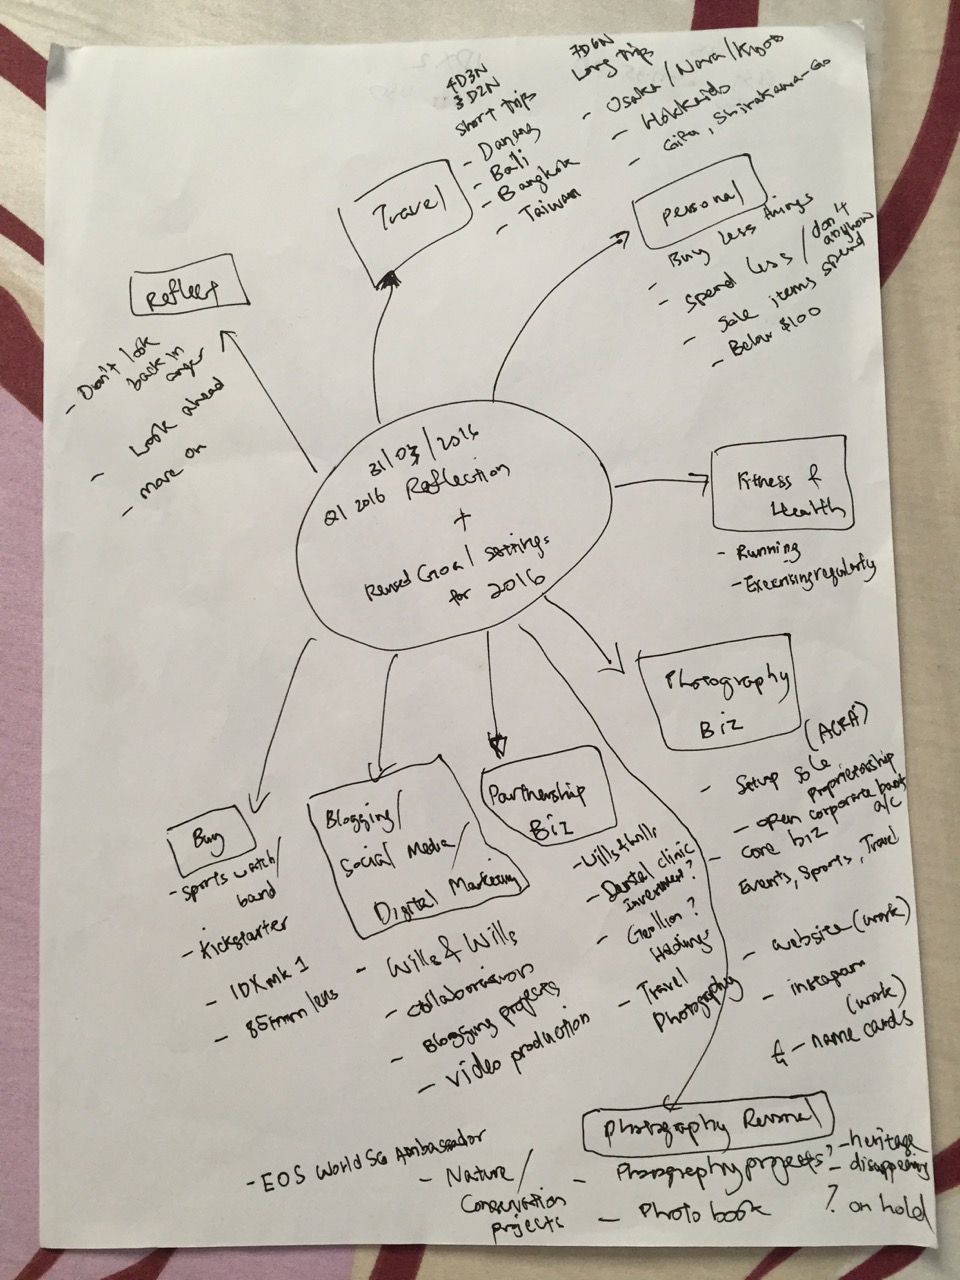 31/03/2016
Q1 2016 Reflection
+
Revised Goal Settings
for 2016
Reflect
- Don't look
back in
anger
- Look ahead
- move on
Travel
4D3N
3D2N
short trips
- Danang
- Bali
- Bangkok
- Taiwan
7D6N
Long trips
- Osaka/Nara/Kyoto
- Hokkaido
- Gifu, Shirakawa-Go
Personal
- Buy less things
- spend less / don't
anyhow
spend
- Sale items
- Below $100
Fitness &
Health
- Running
- Exercising regularly
Photography
Biz
- Setup Sole (ACRA)
Proprietorship
- open corporate bank
a/c
- core biz
Events, Sports, Travel
- website (work)
- instagram
(work)
& - name cards
Partnership
Biz
- Wills & Wills
- Dental clinic
Investment?
- 
Holdings
- Travel
Photography
Blogging/
Social Media/
Digital Marketing
- Wills & Wills
- collaboration
- Blogging projects
- video production
Buy
- sports watch/
band
- Kickstarter
- 1DX mk 1
- 85mm lens
Photography Personal
- Photography projects? - heritage
- disappearing
- Photo book ? on hold
- Nature/
Conservation
projects
- EOS World SG Ambassador